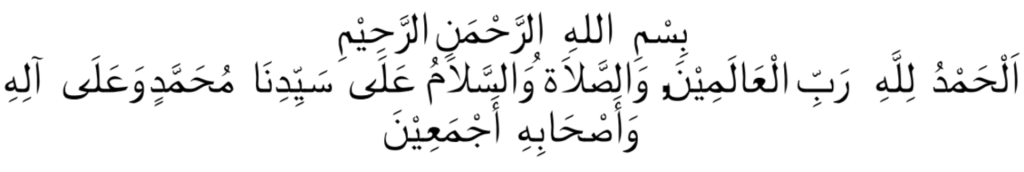 بِسْمِ اللهِ الرَّحْمَنِ الرَّحِيْمِ
اَلْحَمْدُ لِلَّهِ رَبِّ الْعَالَمِيْنَ، وَالصَّلاَةُ وَالسَّلاَمُ عَلَى سَيِّدِنَا مُحَمَّدٍ وَعَلَى آلِهِ
وَأَصْحَابِهِ أَجْمَعِيْنَ